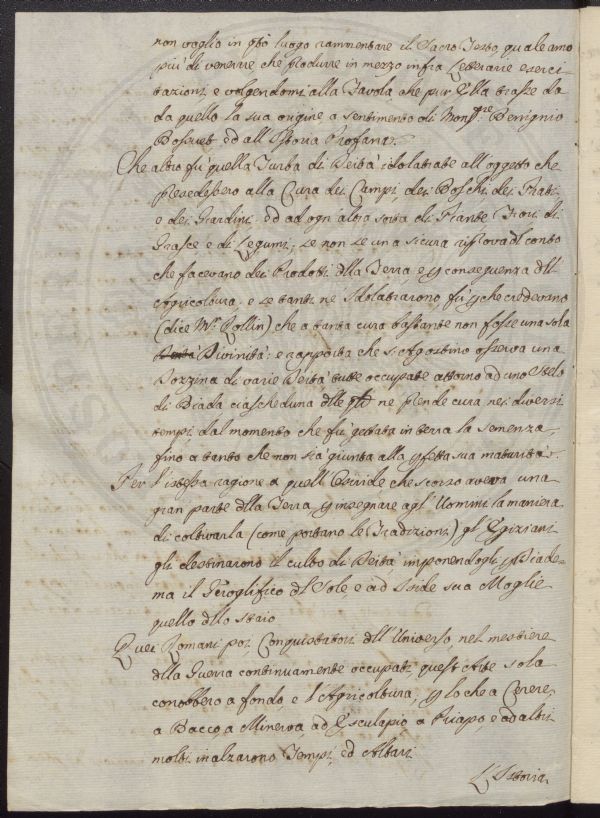 non voglio in q.to luogo rammentare il Sacro Testo, quale amo
più di venerare che produrre in mezzo infra Letterarie eserci-
tazioni, e volgendomi alla Favola, che pur Ella trasse da
da quello la sua origine a sentimento di Mons.re Benignio
Bossuet ed all'Istoria Profana.
Che altro fù quella Turba di Deità idolatrate all'oggetto che
Presedessero alla Cura dei Campi, dei Boschi, dei Prati
e dei Giardini, ed ad ogn'altra sorta di Piante Fiori di
Grasce e di Legumi, se non se una sicura riprova del conto
che facevano dei Prodotti dlla Terra, e p conseguenza dll'
Agricoltura, e se tanti ne Idolatrarono fù p che credevano
(dice Mr. Rollin) che a tanta cura bastante non fosse una sola
Deità Divinità; e rapporta che S. Agostino osserva una
Dozzina di varie Deità tutte occupate attorno ad uno Stelo
di Biada ciascheduna dlle q.li ne prende cura nei diversi
tempi dal momento che fù gettata in terra la semenza,
fino a tanto che non sia giunta alla pfetta sua maturità.
Per l'istessa ragione a quell'Osiride, che scorso aveva una
gran parte dlla Terra p insegnare agl'Uomini la maniera
di coltivarla (come portano le Tradizioni) gl'Egiziani
gli destinarono il culto di Deità imponendogli p Diade-
ma il Geroglifico dl Sole e ad Iside sua Moglie
quello dllo staio
Quei Romani poi Conquistatori dll'Universo, nel mestiere
dlla Guerra continuamente occupati, quest'Arte sola
conobbero a fondo, e l'Agricoltura; p lo che a Cerere,
a Bacco, a Minerva, ad Esculapio, a Priapo, e ad altri
molti inalzarono Tempi, ed Altari
L'Istoria